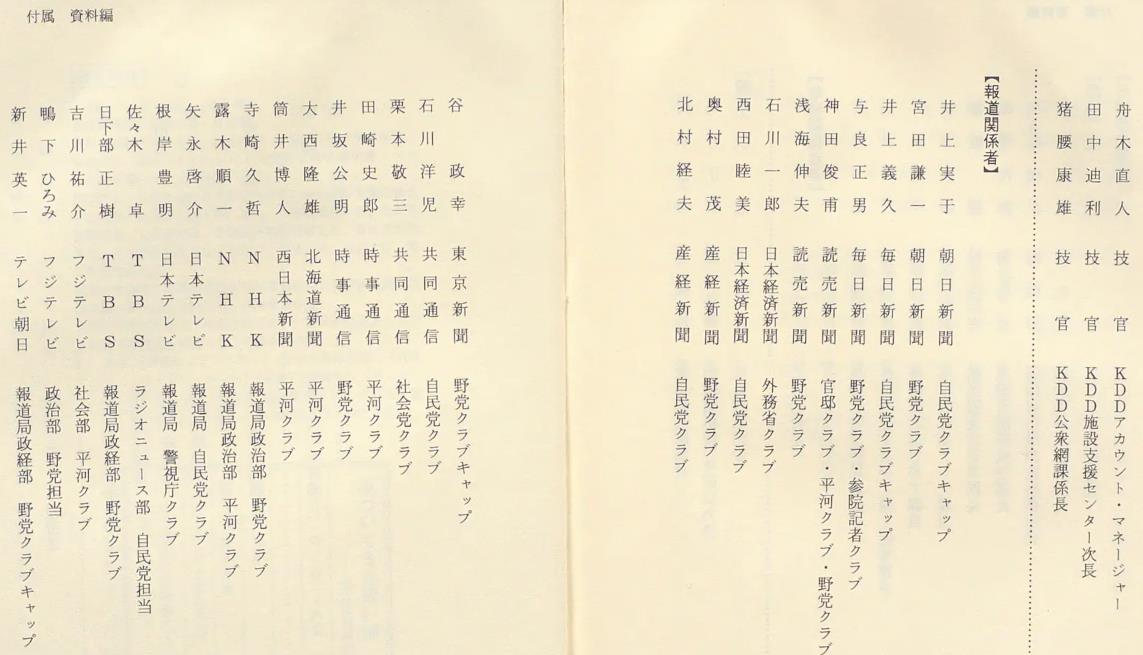 舟木直人 技官 KDDアカウント・マネージャー
田中迪利 技官 KDD施設支援センター次長
猪腰康雄 技官 KDD公衆網課係長
【報道関係者】
井上実于 朝日新聞 自民党クラブキャップ
宮田謙一 朝日新聞 野党クラブ
井上義久 毎日新聞 自民党クラブキャップ
与良正男 毎日新聞 野党クラブ・参院記者クラブ
神田俊甫 読売新聞 官邸クラブ・平河クラブ・野党クラブ
浅海伸夫 読売新聞 野党クラブ
石川一郎 日本経済新聞 外務省クラブ
西田睦美 日本経済新聞 自民党クラブ
奥村茂 産経新聞 野党クラブ
北村経夫 産経新聞 自民党クラブ
付属 資料編
谷政幸 東京新聞 野党クラブキャップ
石川洋児 共同通信 自民党クラブ
栗本敬三 共同通信 社会党クラブ
田崎史郎 時事通信 平河クラブ
井坂公明 時事通信 野党クラブ
大西隆雄 北海道新聞 平河クラブ
筒井博人 西日本新聞 平河クラブ
寺崎久哲 NHK 報道局政治部 野党クラブ
露木順一 NHK 報道局政治部 平河クラブ
矢永啓介 日本テレビ 報道局 自民党クラブ
根岸豊明 日本テレビ 報道局 警視庁クラブ
佐々木卓 TBS ラジオニュース部 自民党担当
日下部正樹 TBS 報道局政経部 野党クラブ
吉川祐介 フジテレビ 社会部 平河クラブ
鴨下ひろみ フジテレビ 政治部 野党担当
新井英一 テレビ朝日 報道局政経部 野党クラブキャップ